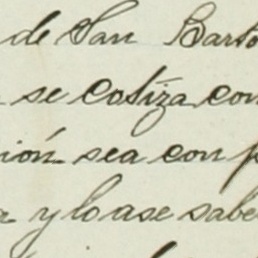 de San Barto
se cotiza con
ión sea con p
y lo ase sabe